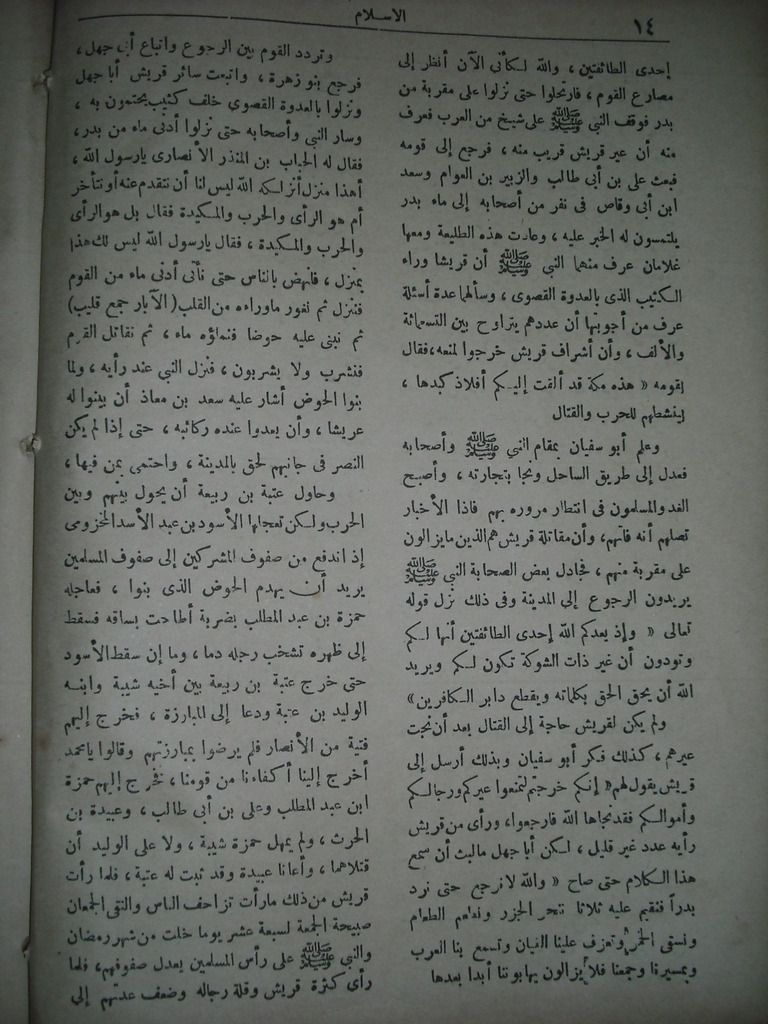 ١٤
الاسلام
إحدى الطائفتين ، والله لكأنى الآن أنظر إلى
مصارع القوم ، فارتحلوا حتى نزلوا على مقربة من
بدر فوقف النبي ﷺ على شيخ من العرب فعرف
منه أن عير قريش قريب منه ، فرجع إلى قومه
فبعث على بن أبى طالب والزبير بن العوام وسعد
ابن أبى وقاص فى نفر من أصحابه إلى ماء بدر
يلتمسون له الخبر عليه ، وعادت هذه الطليعة ومعها
غلامان عرف منهما النبي ﷺ أن قريشا وراء
الكثيب الذى بالعدوة القصوى ، وسألهما عدة أسئلة
عرف من أجوبتها أن عددهم يتراوح بين التسعمائة
والألف ، وأن أشراف قريش خرجوا لمنعه ، فقال
لقومه « هذه مكة قد ألقت إليكم أفلاذ كبدها ،
لينشطهم للحرب والقتال
وعلم أبو سفيان بمقام النبي ﷺ وأصحابه
فعدل إلى طريق الساحل ونجا بتجارته ، وأصبح
الغد والمسلمون فى انتظار مروره بهم فاذا الأخبار
تصلهم أنه فاتهم ، وأن مقاتلة قريش هم الذين مايزالون
على مقربة منهم ، فجادل بعض الصحابة النبي ﷺ
يريدون الرجوع إلى المدينة وفى ذلك نزل قوله
تعالى « وإذ يعدكم الله إحدى الطائفتين أنها لكم
وتودون أن غير ذات الشوكة تكون لكم ويريد
الله أن يحق الحق بكلماته ويقطع دابر الكافرين »
ولم يكن لقريش حاجة إلى القتال بعد أن نجت
عيرهم ، كذلك فكر أبو سفيان وبذلك أرسل إلى
قريش يقول لهم « إنكم خرجتم لتمنعوا عيركم ورجالكم
وأموالكم فقد نجاها الله فارجعوا ، ورأى من قريش
رأيه عدد غير قليل ، لكن أبا جهل مالبث أن سمع
هذا الكلام حتى صاح « والله لا نرجع حتى نرد
بدراً فنقيم عليه ثلاثا ننحر الجزر ونطعم الطعام
ونسقى الخمر وتعزف علينا القيان وتسمع بنا العرب
وبمسيرنا وجمعنا فلا يزالون يهابوننا أبدا بعدها
وتردد القوم بين الرجوع واتباع أبى جهل ،
فرجع بنو زهرة ، واتبعت سائر قريش أبا جهل
ونزلوا بالعدوة القصوى خلف كثيب يحتمون به ،
وسار النبي وأصحابه حتى نزلوا أدنى ماء من بدر ،
فقال له الحباب بن المنذر الأنصارى يارسول الله ،
أهذا منزل أنزلكه الله ليس لنا أن نتقدم عنه أو نتأخر
أم هو الرأى والحرب والمكيدة فقال بل هو الرأى
والحرب والمكيدة ، فقال يارسول الله ليس لك هذا
بمنزل ، فانهض بالناس حتى نأتى أدنى ماء من القوم
فننزل ثم نغور ماوراءه من القلب ( الآبار جمع قليب)
ثم نبنى عليه حوضا فنملؤه ماء ، ثم نقاتل القوم
فنشرب ولا يشربون ، فنزل النبي عند رأيه ، ولما
بنوا الحوض أشار عليه سعد بن معاذ أن يبنوا له
عريشا ، وأن يعدوا عنده ركائبه ، حتى إذا لم يكن
النصر فى جانبهم لحق بالمدينة ، واحتمى بمن فيها ،
وحاول عتبة بن ربيعة أن يحول بينهم وبين
الحرب ولكن تعجلها الأسود بن عبد الأسد المخزومى
إذ اندفع من صفوف المشركين إلى صفوف المسلمين
يريد أن يهدم الحوض الذى بنوا ، فعاجله
حمزة بن عبد المطلب بضربة أطاحت بساقه فسقط
إلى ظهره تشخب رجله دما ، وما إن سقط الأسود
حتى خرج عتبة بن ربيعة بين أخيه شيبة وابنه
الوليد بن عتبة ودعا إلى المبارزة ، فخرج إليهم
فتية من الأنصار فلم يرضوا بمبارزتهم وقالوا يامحمد
أخرج إلينا أكفاءنا من قومنا ، فخرج إليهم حمزة
ابن عبد المطلب وعلى بن أبى طالب ، وعبيدة بن
الحرث ، ولم يمهل حمزة شيبة ، ولا على الوليد أن
قتلاهما ، وأعانا عبيدة وقد ثبت له عتبة ، فلما رأت
قريش من ذلك مارأت تزاحف الناس والتقى الجمعان
صبيحة الجمعة لسبعة عشر يوما خلت من شهر رمضان
والنبي ﷺ على رأس المسلمين يعدل صفوفهم ، فلما
رأى كثرة قريش وقلة رجاله وضعف عدتهم إلى